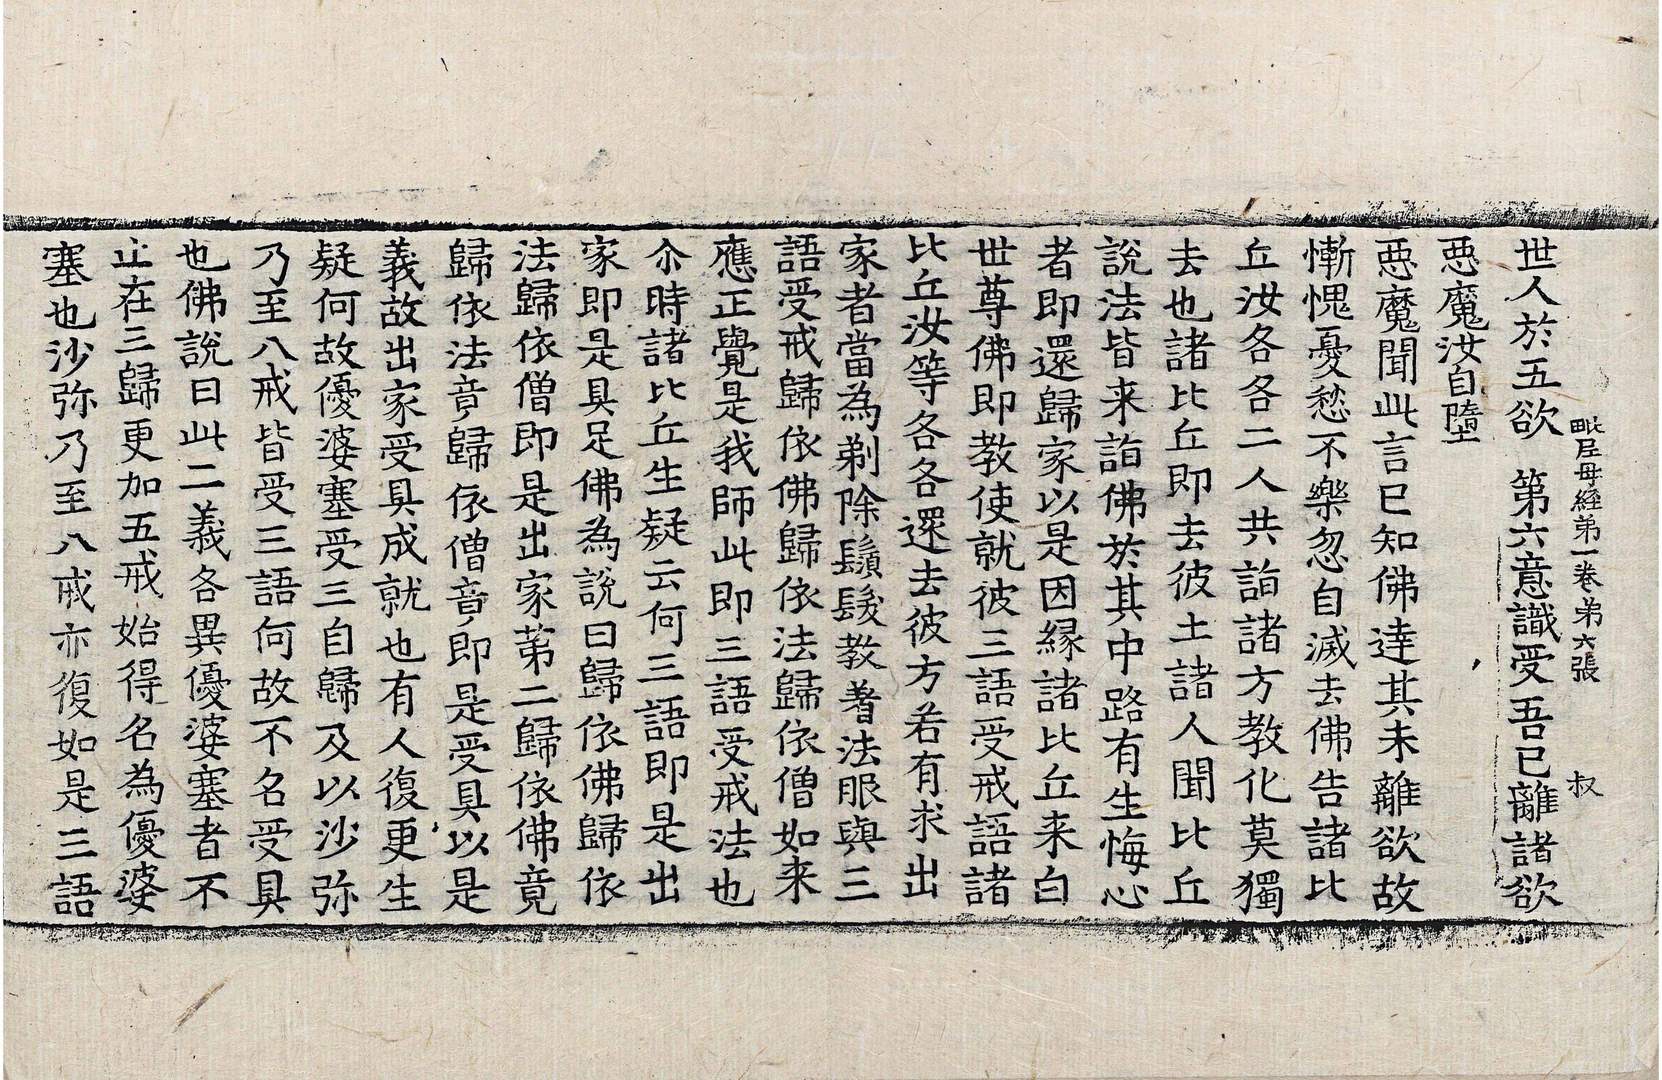 毗尼母經第一卷第六張 叔
世人於五欲 第六意識受吾已離諸欲
惡魔汝自墮
惡魔聞此言已知佛達其未離欲故
慚愧憂愁不樂忽自滅去佛告諸比
丘汝各各二人共詣諸方教化莫獨
去也諸比丘即去彼土諸人聞比丘
說法皆来詣佛於其中路有生悔心
者即還歸家以是因縁諸比丘来白
世尊佛即教使就彼三語受戒語諸
比丘汝等各各還去彼方若有求出
家者當為剃除鬚髮教著法服與三
語受戒歸依佛歸依法歸依僧如来
應正覺是我師此即三語受戒法也
尒時諸比丘生疑云何三語即是出
家即是具足佛為說曰歸依佛歸依
法歸依僧即是出家第二歸依佛竟
歸依法竟歸依僧竟即是受具以是
義故出家受具成就也有人復更生
疑何故優婆塞受三自歸及以沙弥
乃至八戒皆受三語何故不名受具
也佛說曰此二義各異優婆塞者不
止在三歸更加五戒始得名為優婆
塞也沙弥乃至八戒亦復如是三語